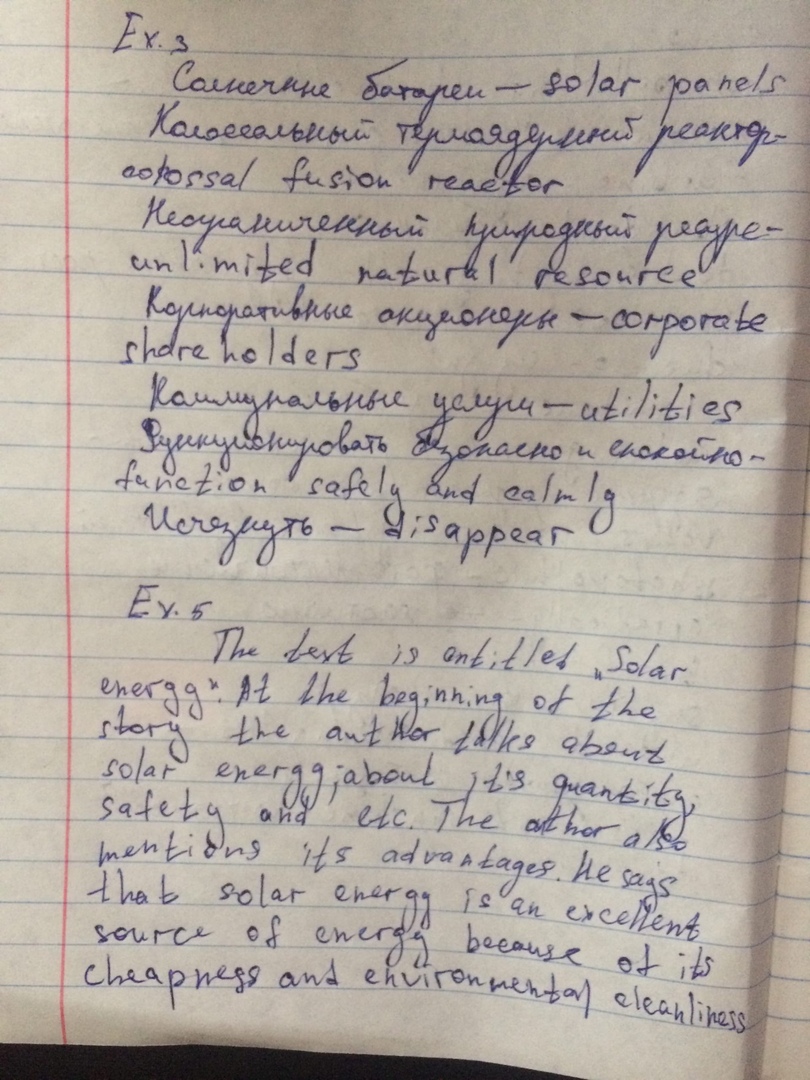 Ex. 3
Солнечные батареи — solar panels
Колоссальный термоядерный реактор-
colossal fusion reactor
Неограниченный природный ресурс-
unlimited natural resource
Корпоративные акционеры — corporate
shareholders
Коммунальные услуги — utilities
Функционировать безопасно и спокойно-
function safely and calmly
Исчезнуть — disappear
Ex. 5
The text is entitled „Solar
energy". At the beginning of the
story the author talks about
solar energy; about it's quantity,
safety and etc. The athor also
mentions its advantages. He says
that solar energy is an excellent
source of energy because of its
cheapness and environmental cleanliness